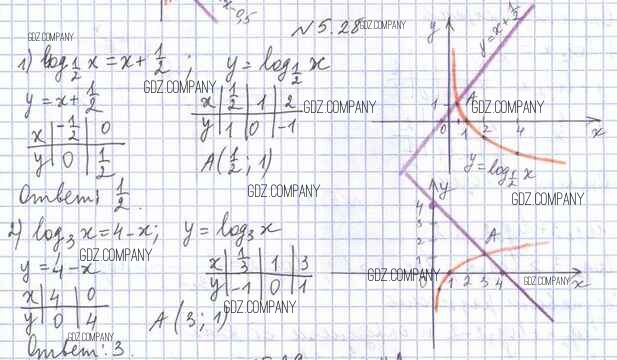 x-0,5
№5.28
GDZ.COMPANY
GDZ.COMPANY
1) log_{1/2} x = x + 1/2 ; y = log_{1/2} x
GDZ.COMPANY
y = x + 1/2
x | -1/2 | 0
y | 0 | 1/2
x | 1/2 | 1 | 2
y | 1 | 0 | -1
A(1/2; 1)
GDZ.COMPANY
Ответ: 1/2.
y
y = x + 1/2
1
A
GDZ.COMPANY
0 1 2 4 x
y = log_{1/2} x
GDZ.COMPANY
2) log_3 x = 4 - x; y = log_3 x
y = 4 - x
x | 4 | 0
y | 0 | 4
x | 1/3 | 1 | 3
y | -1 | 0 | 1
GDZ.COMPANY
A(3; 1)
GDZ.COMPANY
Ответ: 3.
y
4
3
2
1
A
GDZ.COMPANY
0 1 2 3 4 x
GDZ.COMPANY